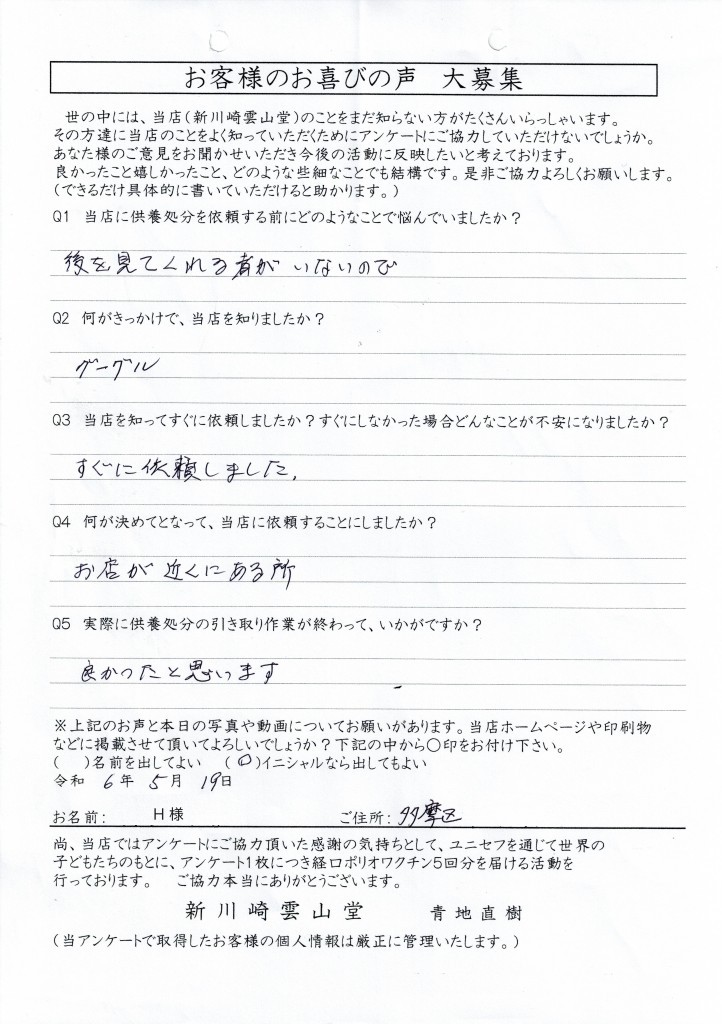 お客様のお喜びの声 大募集
世の中には、当店(新川崎雲山堂)のことをまだ知らない方がたくさんいらっしゃいます。
その方達に当店のことをよく知っていただくためにアンケートにご協力していただけないでしょうか。
あなた様のご意見をお聞かせいただき今後の活動に反映したいと考えております。
良かったこと嬉しかったこと、どのような些細なことでも結構です。是非ご協力よろしくお願いします。
(できるだけ具体的に書いていただけると助かります。)
Q1 当店に供養処分を依頼する前にどのようなことで悩んでいましたか?
後を見てくれる者がいないので
Q2 何がきっかけで、当店を知りましたか?
グーグル
Q3 当店を知ってすぐに依頼しましたか?すぐにしなかった場合どんなことが不安になりましたか?
すぐに依頼しました.
Q4 何が決めてとなって、当店に依頼することにしましたか?
お店が近くにある所
Q5 実際に供養処分の引き取り作業が終わって、いかがですか?
良かったと思います
※上記のお声と本日の写真や動画についてお願いがあります。当店ホームページや印刷物
などに掲載させて頂いてよろしいでしょうか?下記の中から○印をお付け下さい。
( )名前を出してよい (○)イニシャルなら出してもよい
令和 6年 5月 19日
お名前: H様 ご住所: 多摩区
尚、当店ではアンケートにご協力頂いた感謝の気持ちとして、ユニセフを通じて世界の
子どもたちのもとに、アンケート1枚につき経口ポリオワクチン5回分を届ける活動を
行っております。 ご協力本当にありがとうございます。
新川崎雲山堂 青地直樹
(当アンケートで取得したお客様の個人情報は厳正に管理いたします。)